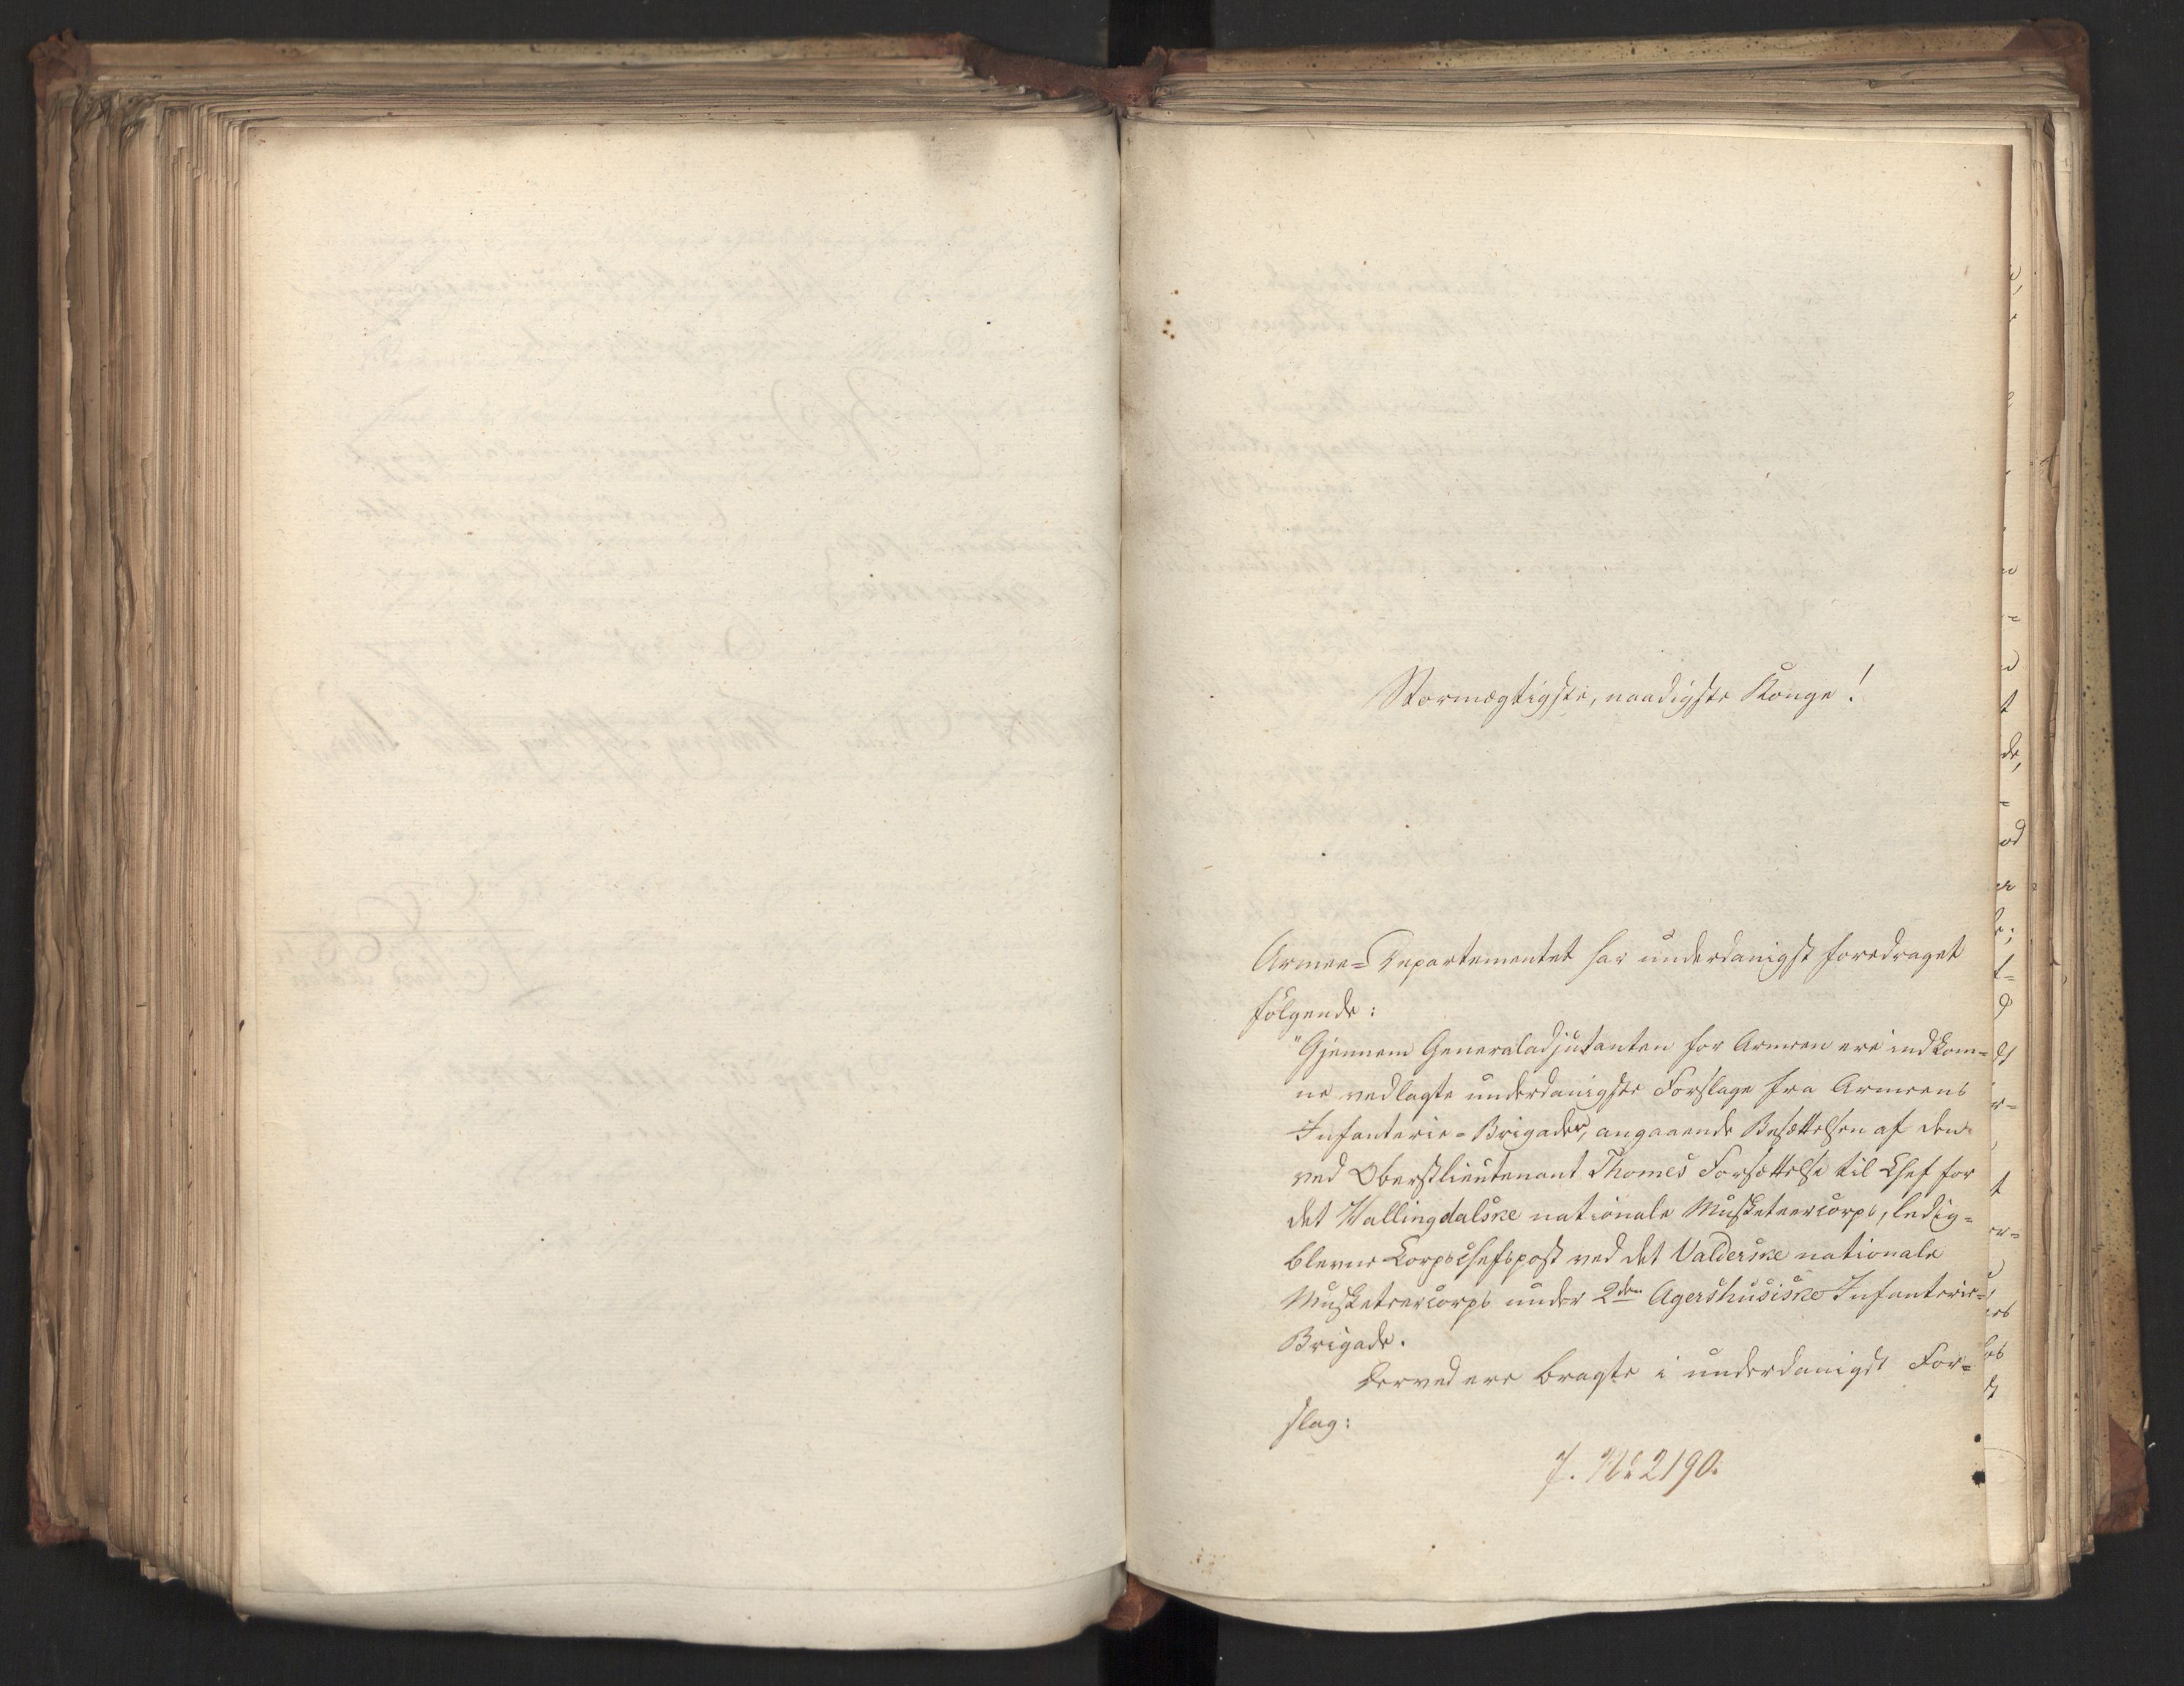 Stormægtigste, naadigste Konge!
Armee=Departementet har underdanigst foredraget
følgende:
"Gjennem Generaladjutanten for Armeen ere indkom=
ne vedlagte underdanigste Forslage fra Armeens
Infanterie=Brigader, angaaende Besættelsen af den
ved Oberstlieutenant Thomes Forsættelse til Chef for
det Hallingdalske nationale Musketeercorps, ledig=
blevne Corpschefspost ved det Valderske nationale
Musketeercorps under 2den Agershusiske Infanterie=
Brigade.
Derved ere bragte i underdanigst For=
slag:
J. No 2190.